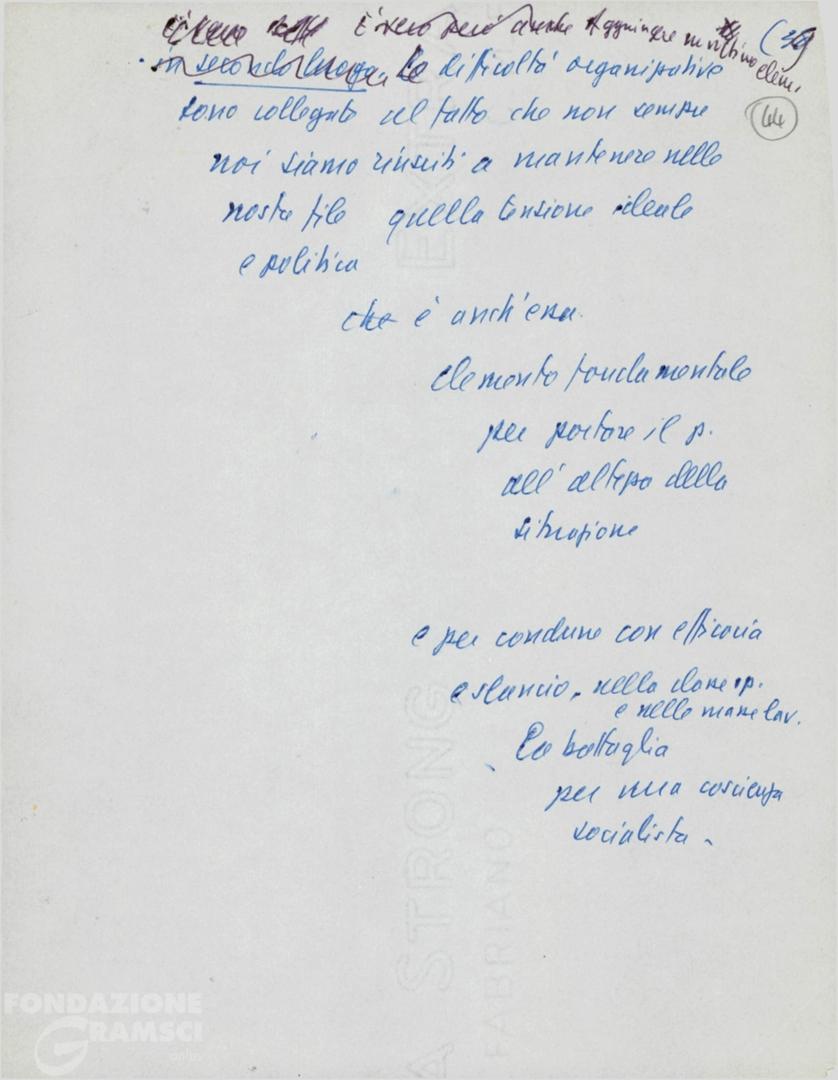 È vero però anche Aggiungere un ultimo elem. (39
44
· in secondo luogo, le difficoltà organizzative
sono collegate al fatto che non sempre
noi siamo riusciti a mantenere nelle
nostre file quella tensione ideale
e politica
che è anch'essa
elemento fondamentale
per portare il p.
all'altezza della
situazione
e per condurre con efficacia
e slancio, nella classe op.
e nelle masse lav.
la battaglia
per una coscienza
socialista.
EXTRA STRONG
FABRIANO
FONDAZIONE
GRAMSCI
onlus